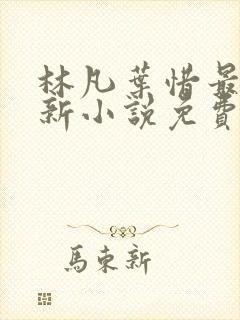 林凡葉惜最
新小說免費
馬東新